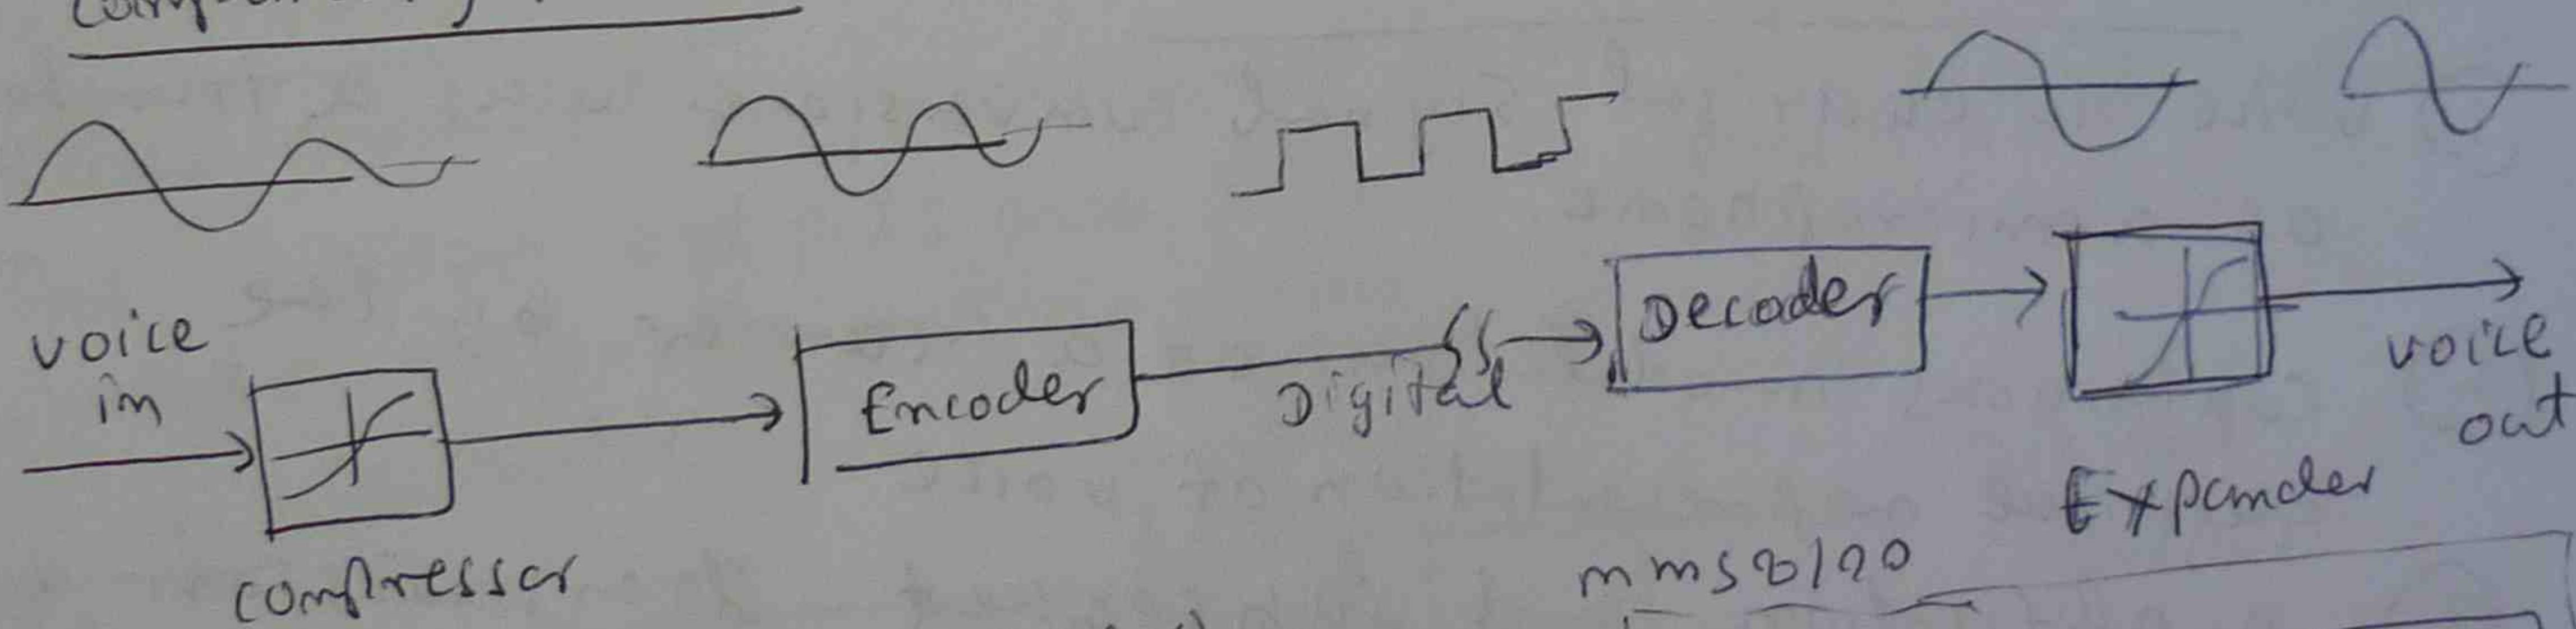 voice
in
compressor
Encoder
Digital
Decoder
Expander
voice
out